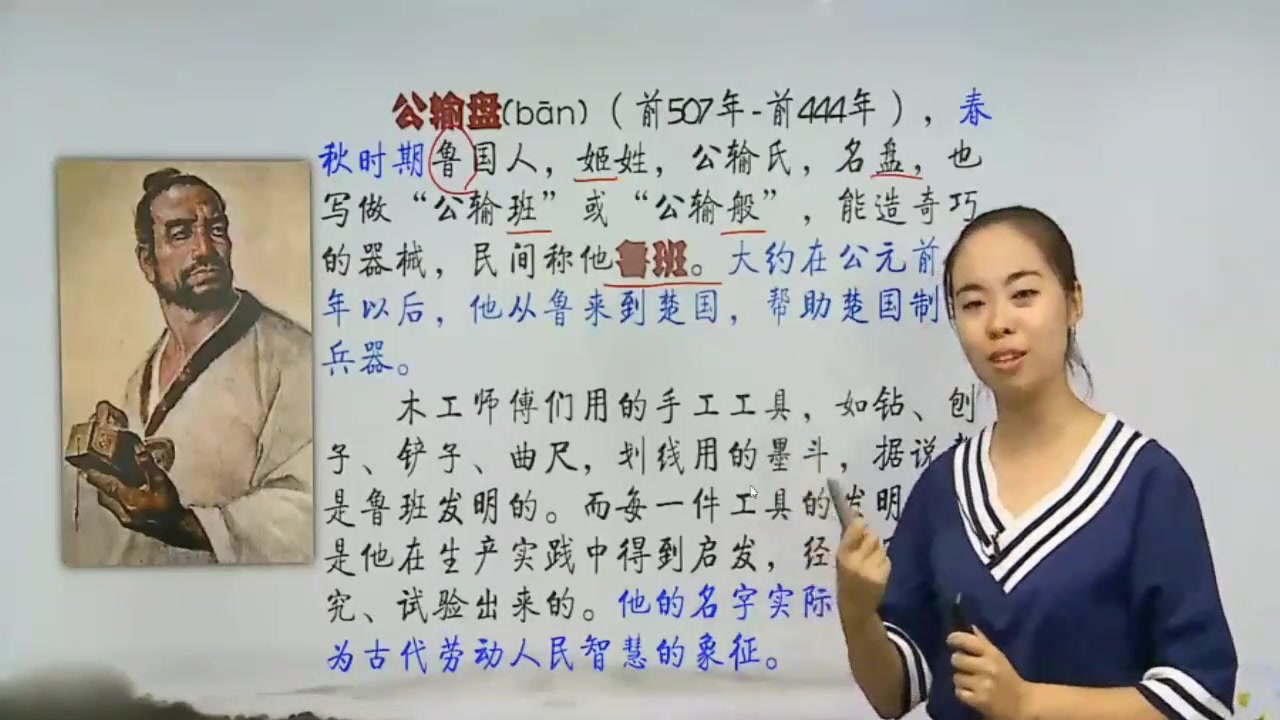 公输盘(bān)(前507年-前444年),春
秋时期鲁国人,姬姓,公输氏,名盘,也
写做“公输班”或“公输般”,能造奇巧
的器械,民间称他鲁班。大约在公元前
年以后,他从鲁来到楚国,帮助楚国制
兵器。
木工师傅们用的手工工具,如钻、刨
子、铲子、曲尺,划线用的墨斗,据说
是鲁班发明的。而每一件工具的发明
是他在生产实践中得到启发,经
究、试验出来的。他的名字实际
为古代劳动人民智慧的象征。